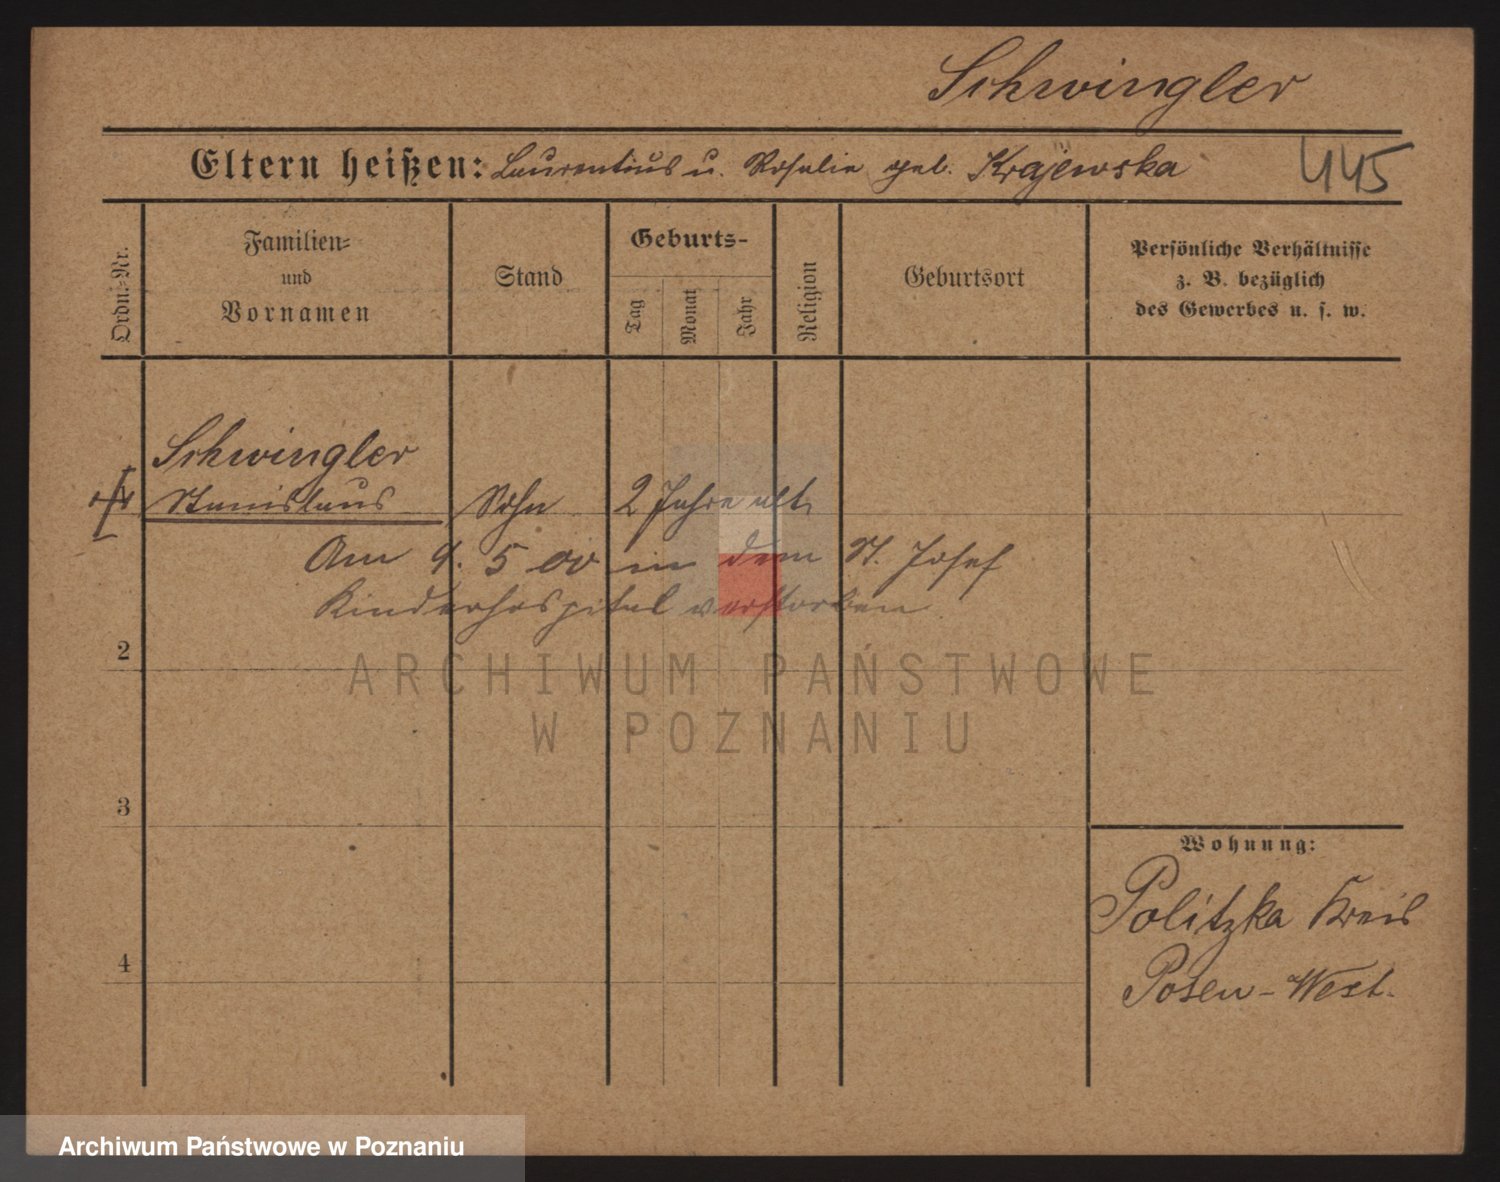 Schwingler
Eltern heißen: Laurentius u. Rosalie geb. Krajewska
445
Ordn.-Nr.
Familien-
und
Vornamen
Stand
Geburts-
Tag
Monat
Jahr
Religion
Geburtsort
Persönliche Verhältnisse
z. B. bezüglich
des Gewerbes u. s. w.
Schwingler
Stanislaus Sohn 2 Jahre alt,
Am 9. 5 00 in dem St. Josef
Kinderhospital verstorben
2
3
4
Wohnung:
Politzka Kreis
Posen-West.
ARCHIWUM PAŃSTWOWE
W POZNANIU
Archiwum Państwowe w Poznaniu